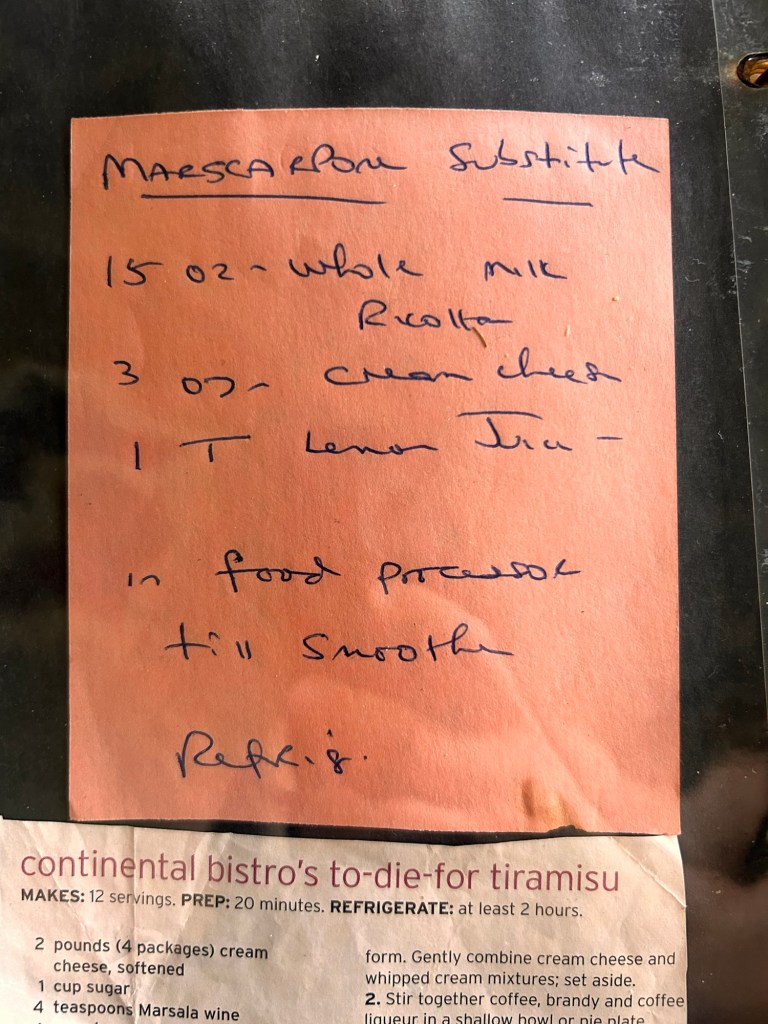 MARSCARPONE Substitute
15 oz - whole milk
Ricotta
3 oz - cream cheese
1 T Lemon Juice -
in food processor
till smoothe
Refrig.
continental bistro's to-die-for tiramisu
MAKES: 12 servings. PREP: 20 minutes. REFRIGERATE: at least 2 hours.
2 pounds (4 packages) cream
cheese, softened
1 cup sugar
4 teaspoons Marsala wine
form. Gently combine cream cheese and
whipped cream mixtures; set aside.
2. Stir together coffee, brandy and coffee
liqueur in a shallow bowl or pie plate.